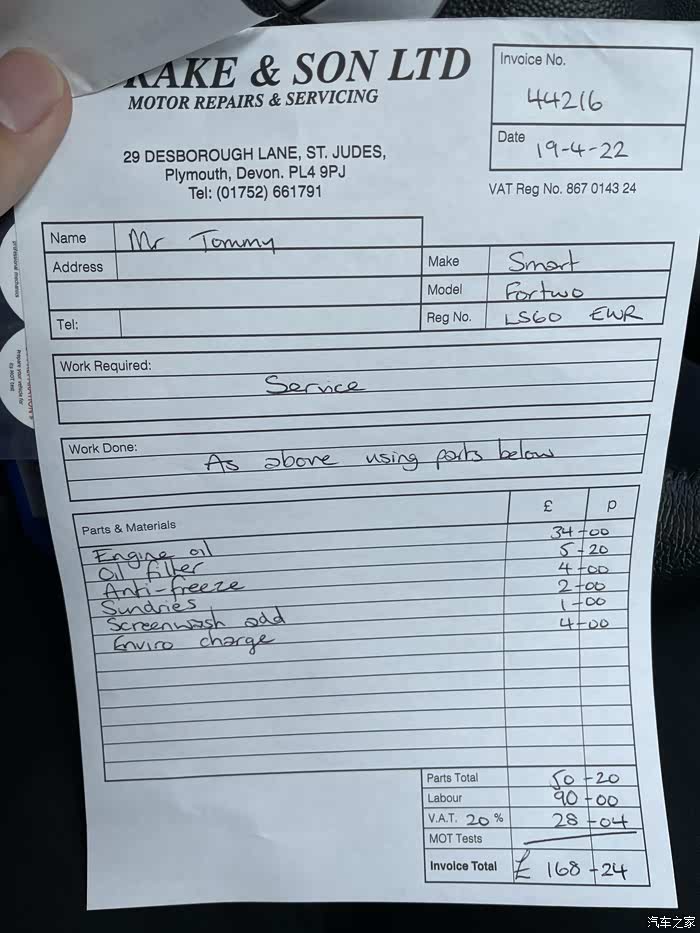 RAKE & SON LTD
MOTOR REPAIRS & SERVICING
29 DESBOROUGH LANE, ST. JUDES,
Plymouth, Devon. PL4 9PJ
Tel: (01752) 661791
Invoice No.
44216
Date 19-4-22
VAT Reg No. 867 0143 24
Name Mr Tommy
Address
Tel:
Make Smart
Model Fortwo
Reg No. LS60 EWR
Work Required:
Service
Work Done:
As above using parts below
Parts & Materials £ p
Engine oil 34-00
Oil filter 5-20
Anti-freeze 4-00
Sundries 2-00
Screenwash add 1-00
Enviro charge 4-00
Parts Total 50-20
Labour 90-00
V.A.T. 20 % 28-04
MOT Tests
Invoice Total £ 168-24
汽车之家